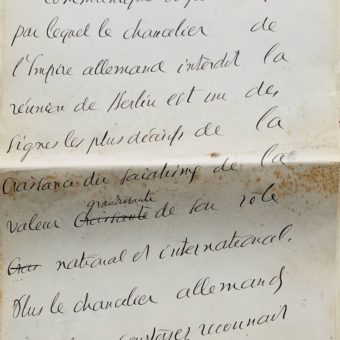 par lequel le chancelier de
l'Empire allemand interdit la
réunion de Berlin est un des
signes les plus décisifs de la
du socialisme de la
grandissante
valeur croissante de son rôle
national et international.
Plus le chancelier allemand
reconnait